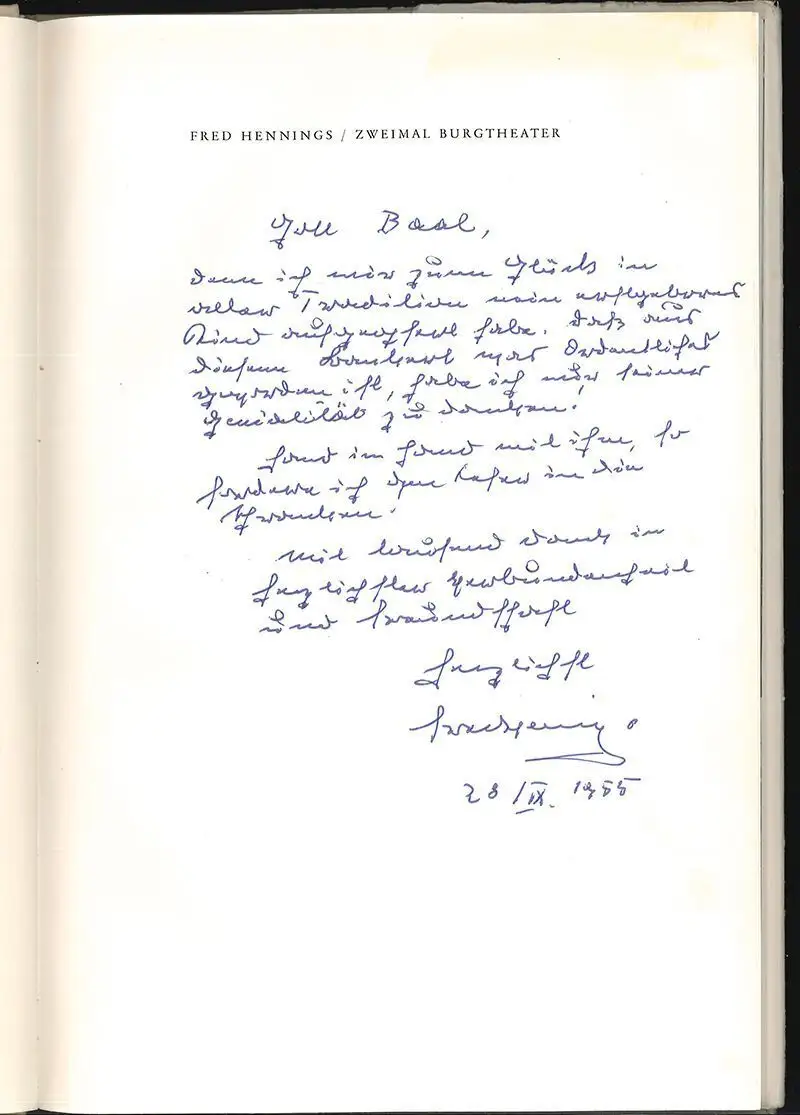 FRED HENNINGS / ZWEIMAL BURGTHEATER
Gott Baal,
dem ich mir zum Glück in
alter Tradition mein erstgeborenes
Kind aufgeopfert habe. Daß aus
diesem Bankert was Ordentliches
geworden ist, habe ich nur seiner
Genialität zu danken!
Hand in Hand mit ihm, so
fordere ich den Leser in die
Schranken!
Mit tausend Dank in
herzlichster Verbundenheit
und Freundschaft
herzlichst
Fred Hennings
28/IX. 1955